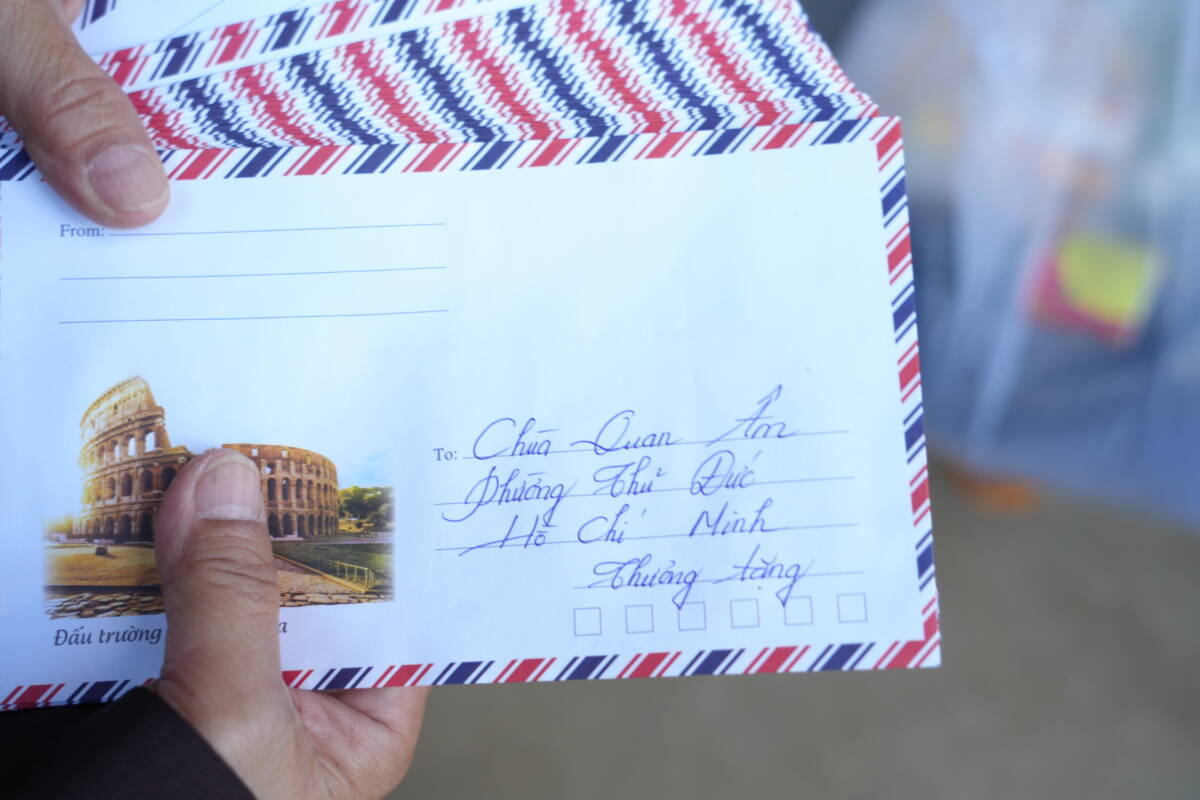 From:
To: Chùa Quan Âm
Phường Thủ Đức
Hồ Chí Minh
Thưởng tặng
Đấu trường